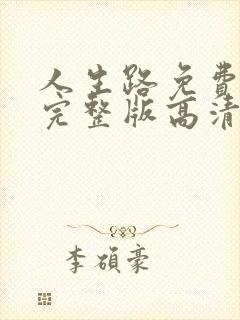 人生路免費
完整版高清
李碩豪